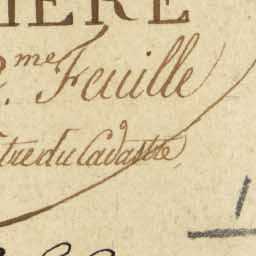 IERE
me Feuille
tre du Cadastre
1